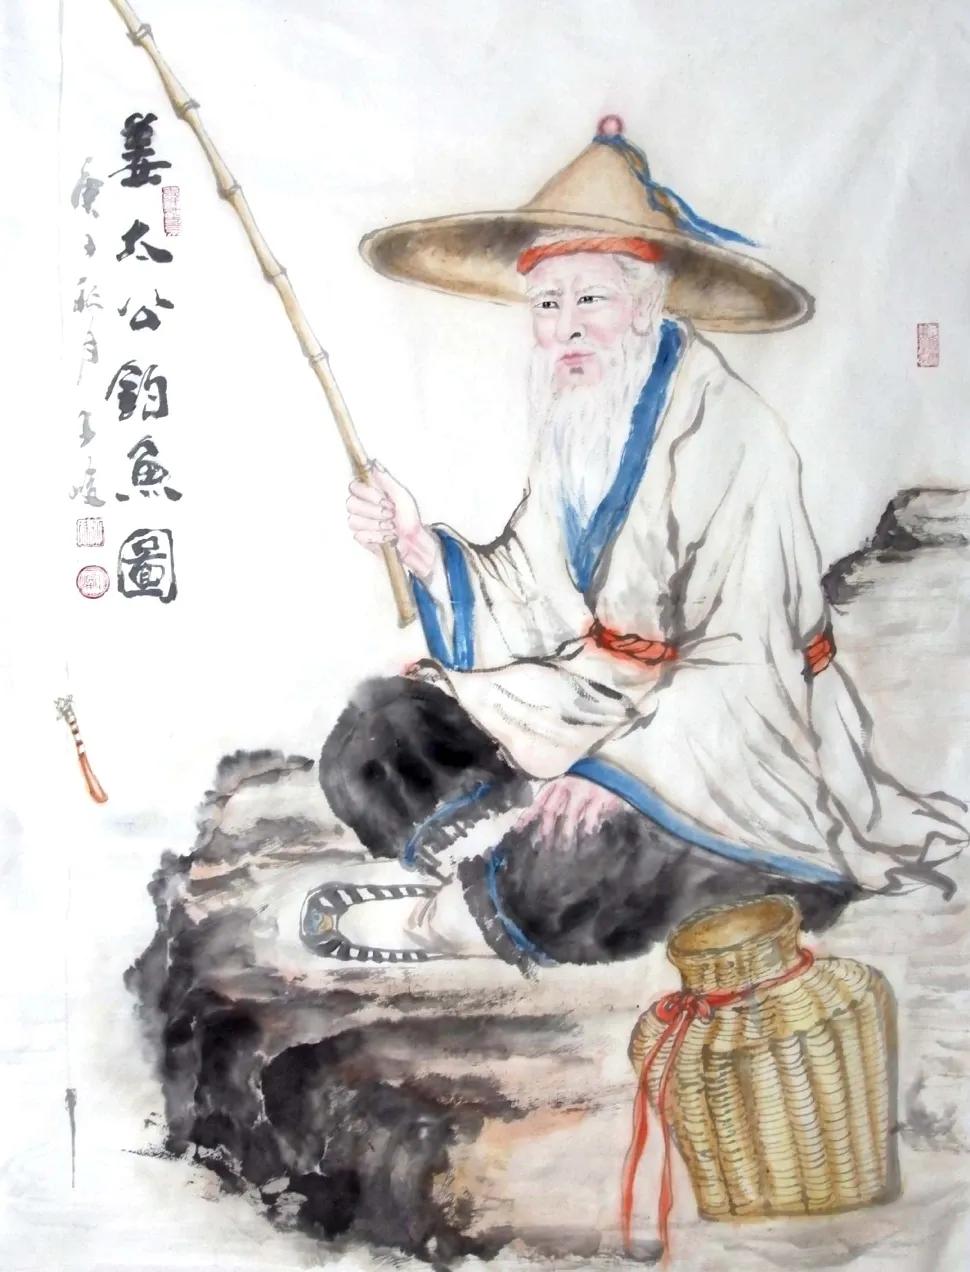 姜太公钓魚圖
庚子秋月